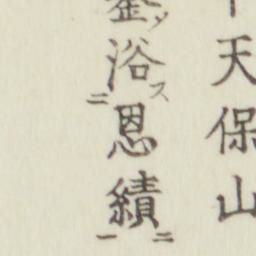 天保山
浴ス二恩績ニ一